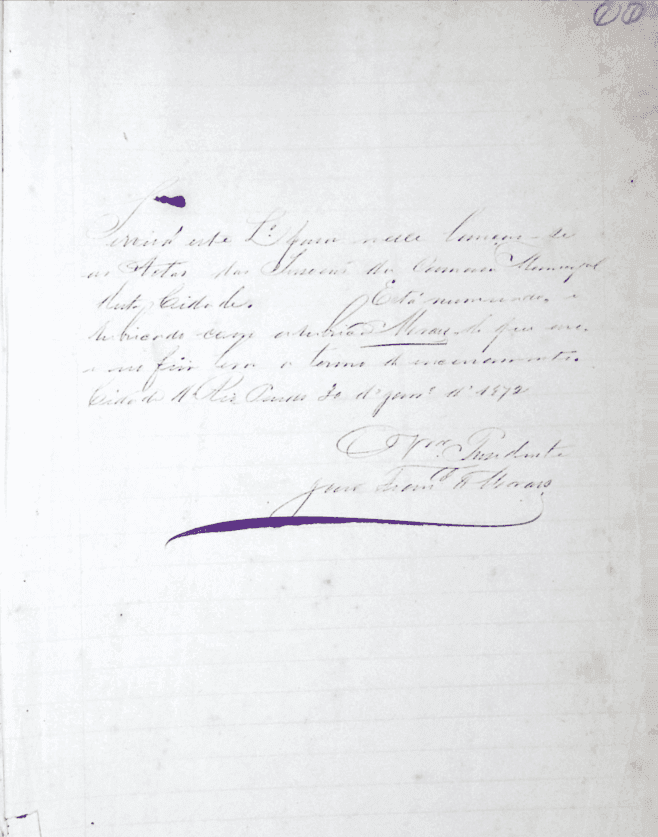 Servirá este L.º para nelle lançar-se
as Actas das Sessoens da Camara Municipal
desta Cidade. Está numerado, e
rubricado com a rubrica Moraes de que uso,
e no fim leva o termo de encerramento.
Cidade 30 de Jan.º de 1872
O Ver. Presidente
Moraes